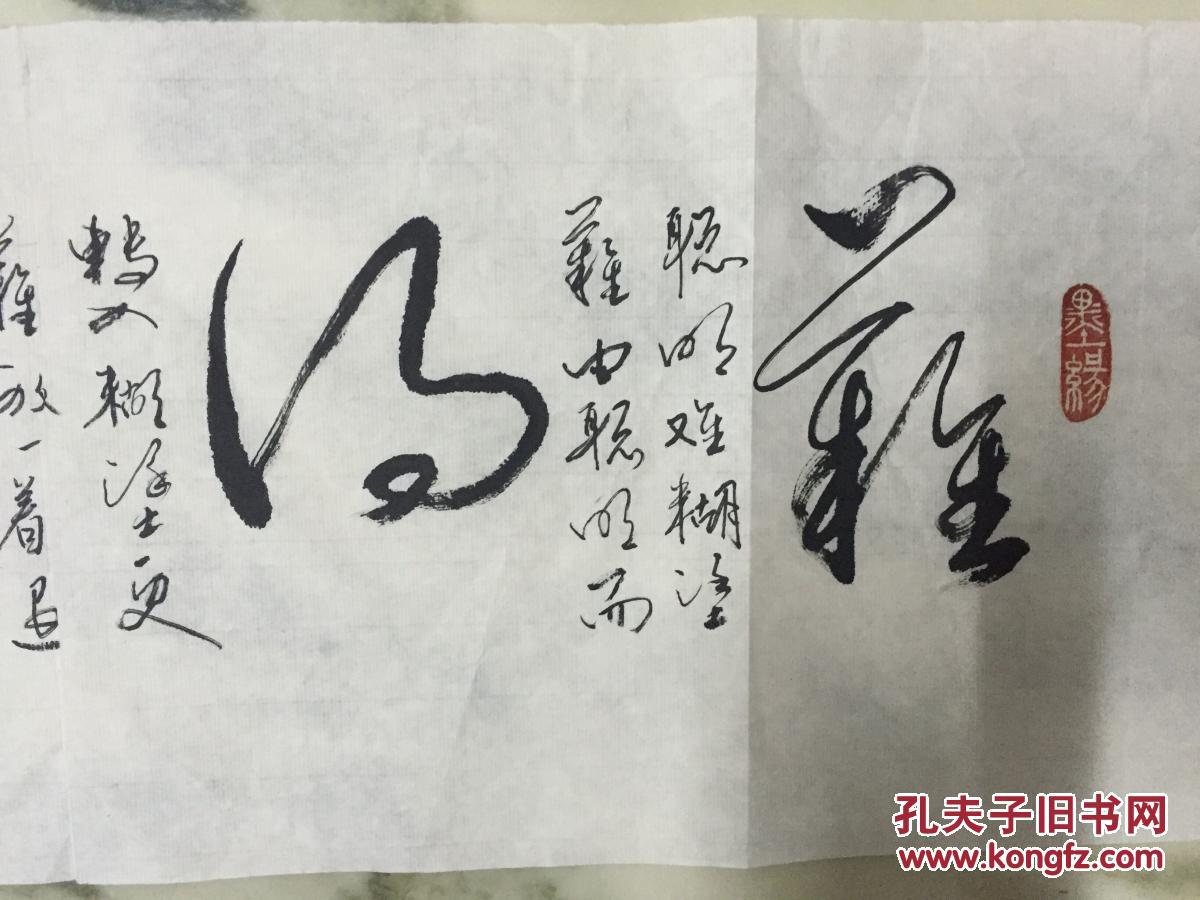 墨缘
難
聪明难糊塗
難由聪明而
得
轉入糊塗更
難放一着退
孔夫子旧书网
www.kongfz.com